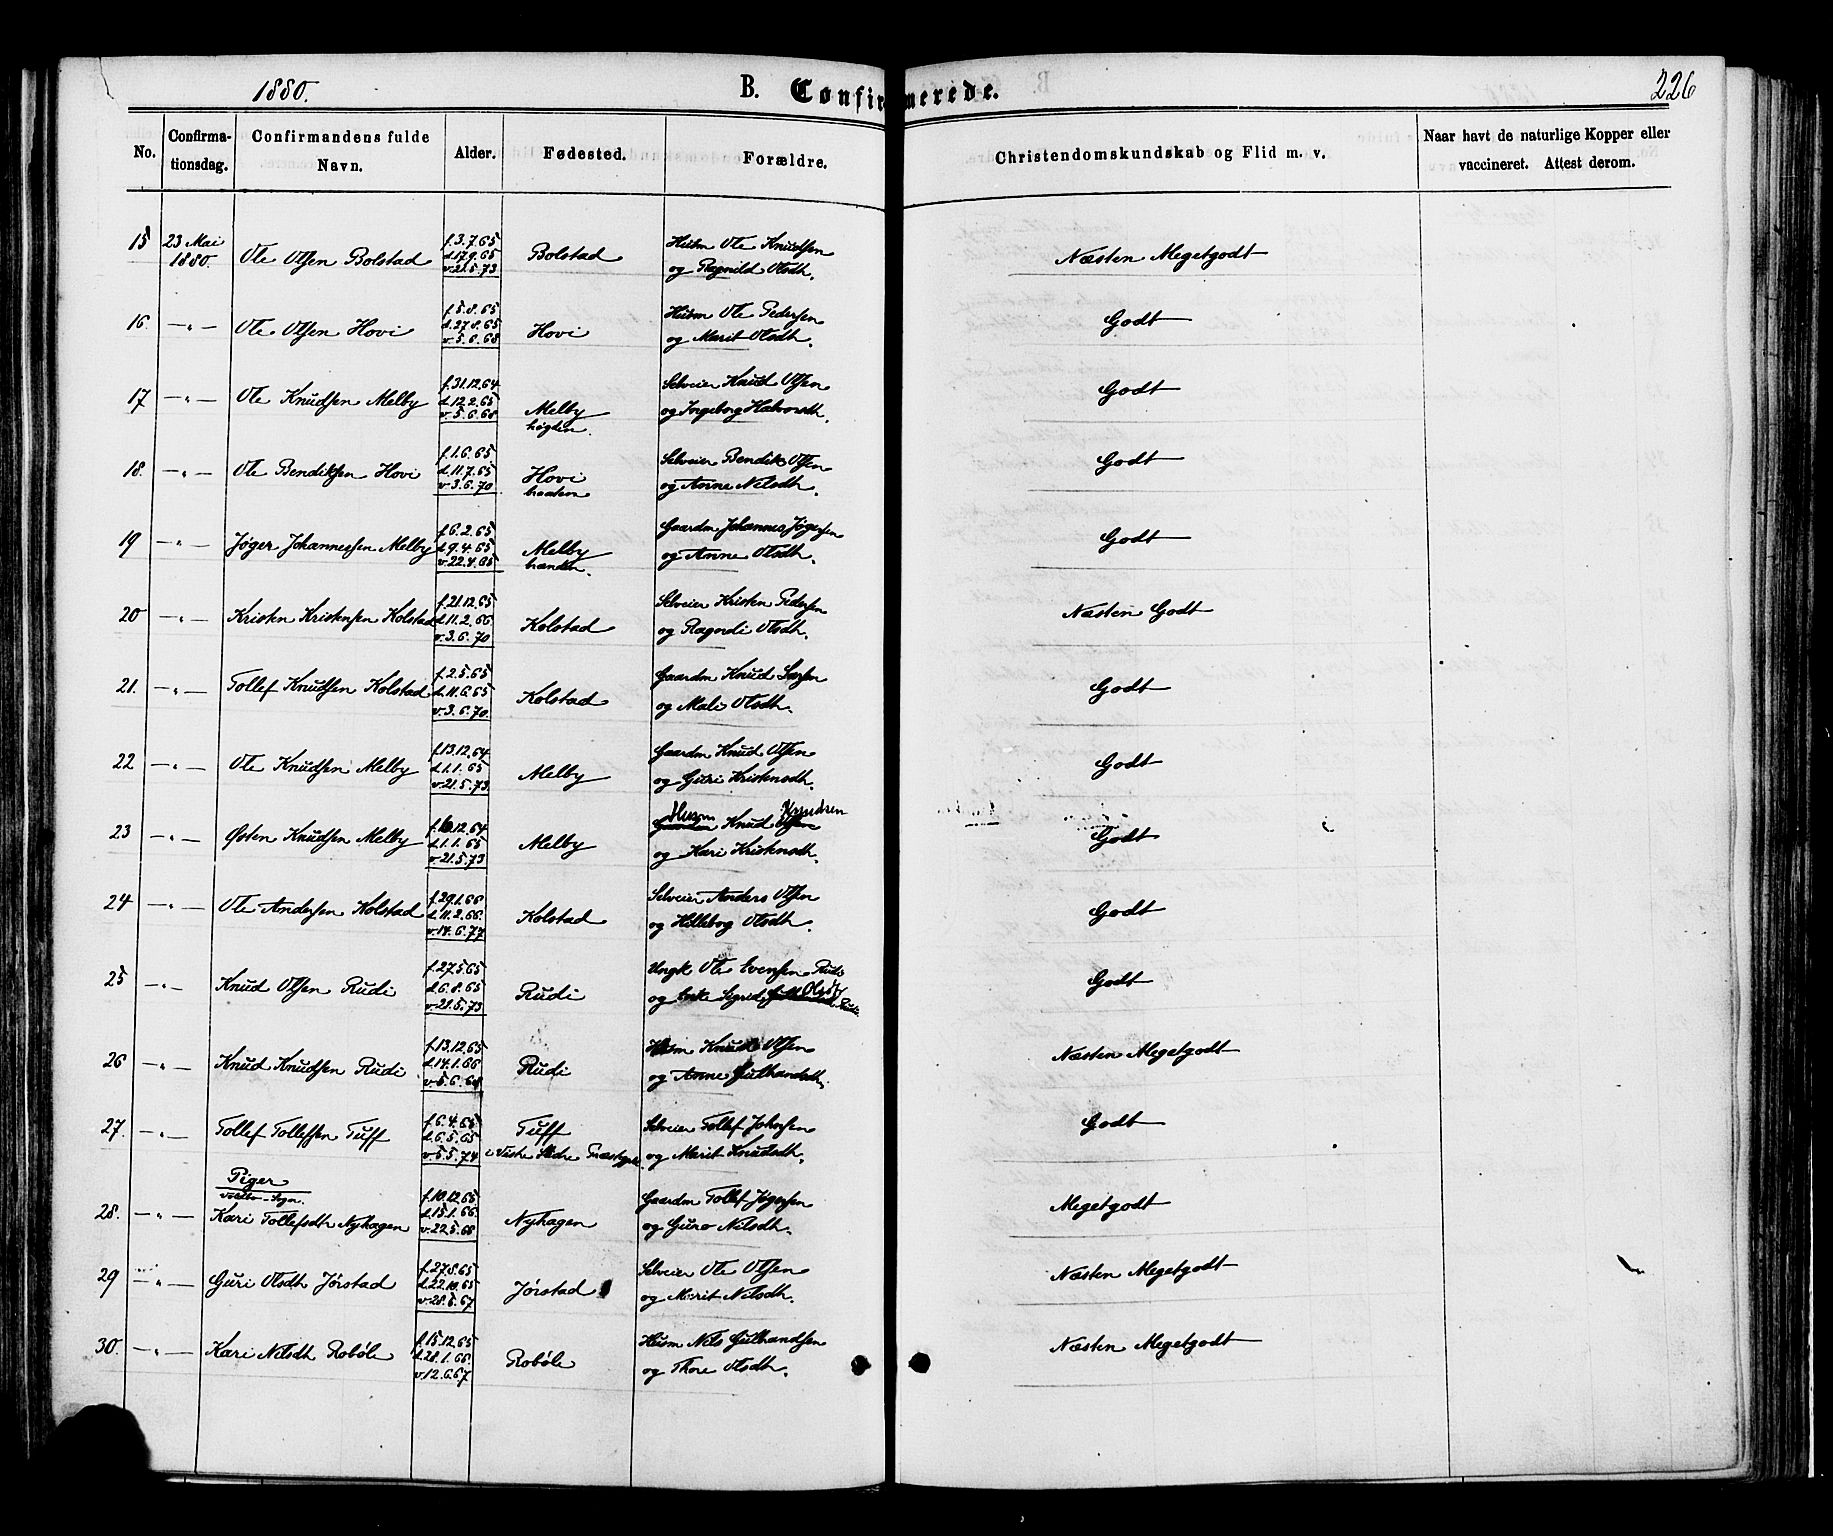 1880.
B. Confirmerede.
226
No.
Confirma-
tionsdag.
Confirmandens fulde
Navn.
Alder.
Fødested.
Forældre.
Christendomskundskab og Flid m. v.
Naar havt de naturlige Kopper eller
vaccineret. Attest derom.
15 23 Mai 1880. Ole Olsen Bolstad
f.3.7.65
d.17.9.65
v.21.5.73
Bolstad
Husm Ole Knudsen
og Ragnild Olsdh.
Næsten Megetgodt
16. —„— Ole Olsen Hovi
f.5.8.65
d.27.8.65
v.5.6.68
Hovi
Husm Ole Pedersen
og Marit Olsdh.
Godt
17 —„— Ole Knudsen Melby
f.31.12.64
d.12.2.65
v.5.6.68
Melby
høgden.
Selveier Knud Olsen
og Ingeborg Halvorsdh.
Godt
18. —„— Ole Bendiksen Hovi
f.1.6.65
d.11.7.65
v.3.6.70
Hovi
braaten
Selveier Bendik Olsen
og Anne Nilsdh.
Godt
19 —„— Jøger Johannessen Melby
f.6.2.65
d.9.4.65
v.22.4.65
Melby
Gaardm Johannes Jøgersen
og Anne Olsdh.
Godt
20 —„— Kristen Kristensen Kolstad
f.21.12.65
d.11.2.66
v.3.6.70
Kolstad
Selveier Kristen Pedersen
og Ragndi Olsdh.
Næsten Godt
21. —„— Tollef Knudsen Kolstad
f.2.5.65
d.11.6.65
v.3.6.70
Kolstad
Gaardm Knud
og Mali Olsdh.
Godt
22 —„— Ole Knudsen Melby
f.13.12.64
d.1.1.65
v.21.5.73
Melby
Gaardm Knud Olsen
og Guri Kristensdh.
Godt
23 —„— Østen Knudsen Melby
f.10.12.64
d.1.1.65
v.21.5.73
Melby
Husm Knudsen
Gaardm Knud Olsen
og Kari Kristensdh.
Godt
24 —„— Ole Andersen Kolstad
f.29.1.66
d.11.2.66.
v.14.6.77
Kolstad
Selveier Anders Olsen
og Hilleborg Olsdh.
Godt
25 —„— Knud Olsen Rudi
f.27.5.65
d.6.8.65
v.21.5.73
Rudi
Ungk Ole Evensen Rudi
og Enke Sigrid Olsdh
Godt
26 —„— Knud Knudsen Rudi
f.13.12.65
d.14.1.66
v.5.6.68
Rudi
Husm Knud Olsen
og Anne Gulbrandsdh.
Næsten Megetgodt
27. —„— Tollef Tollefsen Tuff
f.6.4.65
d.6.5.65
v.5.5.74
Tuff
i Vestre Slidre Præstegjeld
Selveier Tollef Johnsen
og Marit Knudsdh.
Godt
Piger
Volbu-Sogn.
28. —„— Kari Tollefsdh Nyhagen
f.10.12.65
d.15.1.66.
v.22.5.68
Nyhagen
Gaardm Tollef Jøgersen
og Guro Nilsdh.
Megetgodt
29 —„— Guri Olsdh Jørstad
f.27.8.65
d.22.10.65
v.28.5.67
Jørstad
Selveier Ole Olsen
og Marit Nilsdh.
Næsten Megetgodt
30. —„— Kari Nilsdh Robøle
f.15.12.65
d.28.1.66.
v.12.6.67
Robøle
Husm Nils Gulbrandsen
og Thore Olsdh.
Næsten Megetgodt